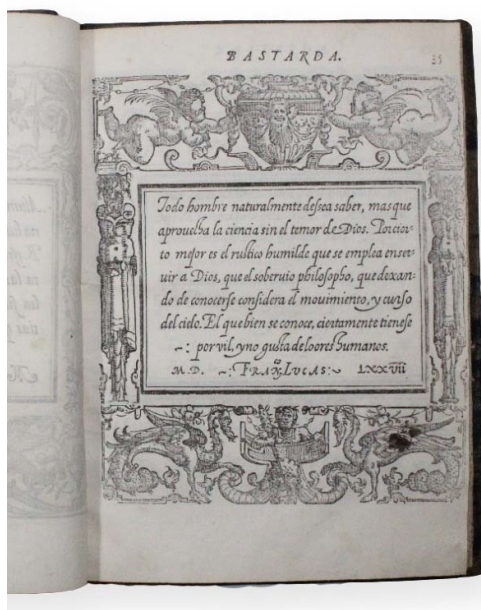 BASTARDA.
35
Todo hombre naturalmente dessea saber, mas que
aprouecha la ciencia sin el temor de Dios. Porcier-
to mejor es el rustico humilde que se emplea enser-
uir a Dios, que el soberuio philosopho, que dexan-
do de conocerse considera el mouimiento, y curso
del cielo. El que bien se conoce, ciertamente tienese
-: por vil, y no gusta de loores humanos.
M.D. ~: FRAN.º LVCAS :~ LXXVII